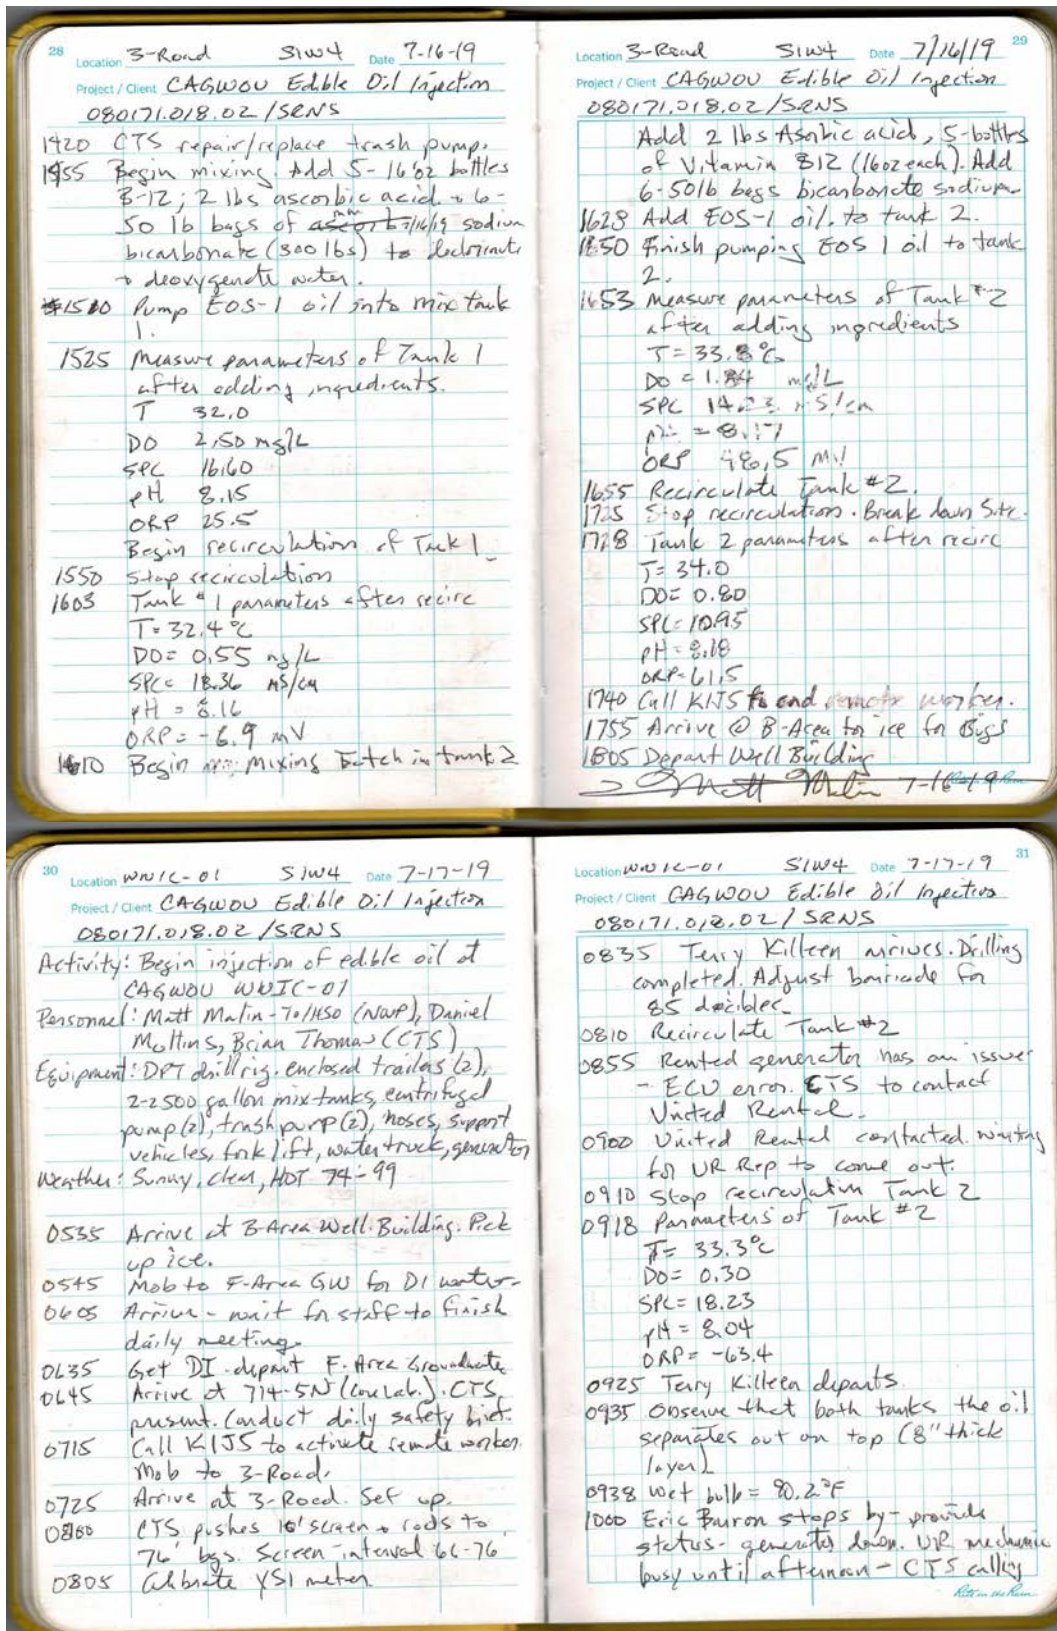 28
Location 3-Road S1W4 Date 7-16-19
Project / Client CAGWOU Edible Oil Injection
080171.018.02/SRNS
1420 CTS repair/replace trash pump.
1455 Begin mixing. Add 5-16 oz bottles
B-12; 2 lbs ascorbic acid + 6-
50 lb bags of 7/16/19 sodium
bicarbonate (300 lbs) to declorinate
+ deoxygenate water.
1510 Pump EOS-1 oil into mix tank
1.
1525 Measure parameters of Tank 1
after adding ingredients.
T 32.0
DO 2.50 mg/L
SPC 16.60
pH 8.15
ORP 25.5
Begin recirculation of Tack 1
1550 Stop recirculation
1603 Tank #1 parameters after recirc
T= 32.4°C
DO= 0.55 mg/L
SPC= 18.36 MS/cm
pH = 8.16
ORP = -6.9 mV
1610 Begin mixing batch in tank 2
29
Location 3-Road S1W4 Date 7/16/19
Project / Client CAGWOU Edible Oil Injection
080171.018.02/SRNS
Add 2 lbs Asorbic acid, 5-bottles
of Vitamin B12 (16oz each). Add
6-50lb bags bicarbonate sodium.
1628 Add EOS-1 oil to tank 2.
1650 Finish pumping EOS 1 oil to tank
2.
1653 Measure parameters of Tank #2
after adding ingredients
T = 33.8°C
DO = 1.84 mg/L
SPC 14.23 mS/cm
pH = 8.17
ORP 48.5 mV
1655 Recirculate Tank #2.
1725 Stop recirculations. Break down Site.
1728 Tank 2 parameters after recirc
T= 34.0
DO= 0.80
SPC= 10.95
pH = 8.18
ORP= 61.5
1740 Call KIJS to end remote worker.
1755 Arrive @ B-Area for ice for Bugs
1805 Depart Well Building
Matt Malin 7-16-19
Rite in the Rain
30
Location WNIC-01 S1W4 Date 7-17-19
Project / Client CAGWOU Edible Oil Injection
080171.018.02/SRNS
Activity: Begin injection of edible oil at
CAGWOU WNIC-01
Personnel: Matt Malin-TO/HSO (NWP), Daniel
Mullins, Brian Thomas (CTS)
Equipment: DPT drill rig, enclosed trailers (2),
2-2500 gallon mix tanks, centrifugal
pump (2), trash pump (2), hoses, support
vehicles, fork lift, water truck, generator
Weather: Sunny, clear, HOT 74-99
0535 Arrive at B-Area Well Building. Pick
up ice.
0545 Mob to F-Area GW for DI water.
0605 Arrive - wait for staff to finish
daily meeting.
0635 Get DI. depart F-Area Groundwater
0645 Arrive at 714-5N (Core Lab.). CTS
present. Conduct daily safety brief.
0715 Call KIJS to activate remote worker.
Mob to 3-Road.
0725 Arrive at 3-Road. Set up.
0800 CTS pushes 10' screen + rods to
76' bgs. Screen interval 66-76
0805 Calibrate YSI meter.
31
Location WNIC-01 S1W4 Date 7-17-19
Project / Client CAGWOU Edible Oil Injection
080171.018.02/SRNS
0835 Terry Killeen arrives. Drilling
completed. Adjust barricade for
85 decibles.
0810 Recirculate Tank #2
0855 Rented generator has an issue
- ECU error. CTS to contact
United Rental.
0900 United Rental contacted. waiting
for UR Rep to come out.
0910 Stop recirculation Tank 2
0918 Parameters of Tank #2
T= 33.3°C
DO= 0.30
SPC= 18.23
pH = 8.04
ORP= -63.4
0925 Terry Killeen departs.
0935 Observe that both tanks the oil
separates out on top (8" thick
layer)
0938 Wet bulb = 80.2°F
1000 Eric Barron stops by - provide
status - generator down. UR mechanic
busy until afternoon - CTS calling
Rite in the Rain